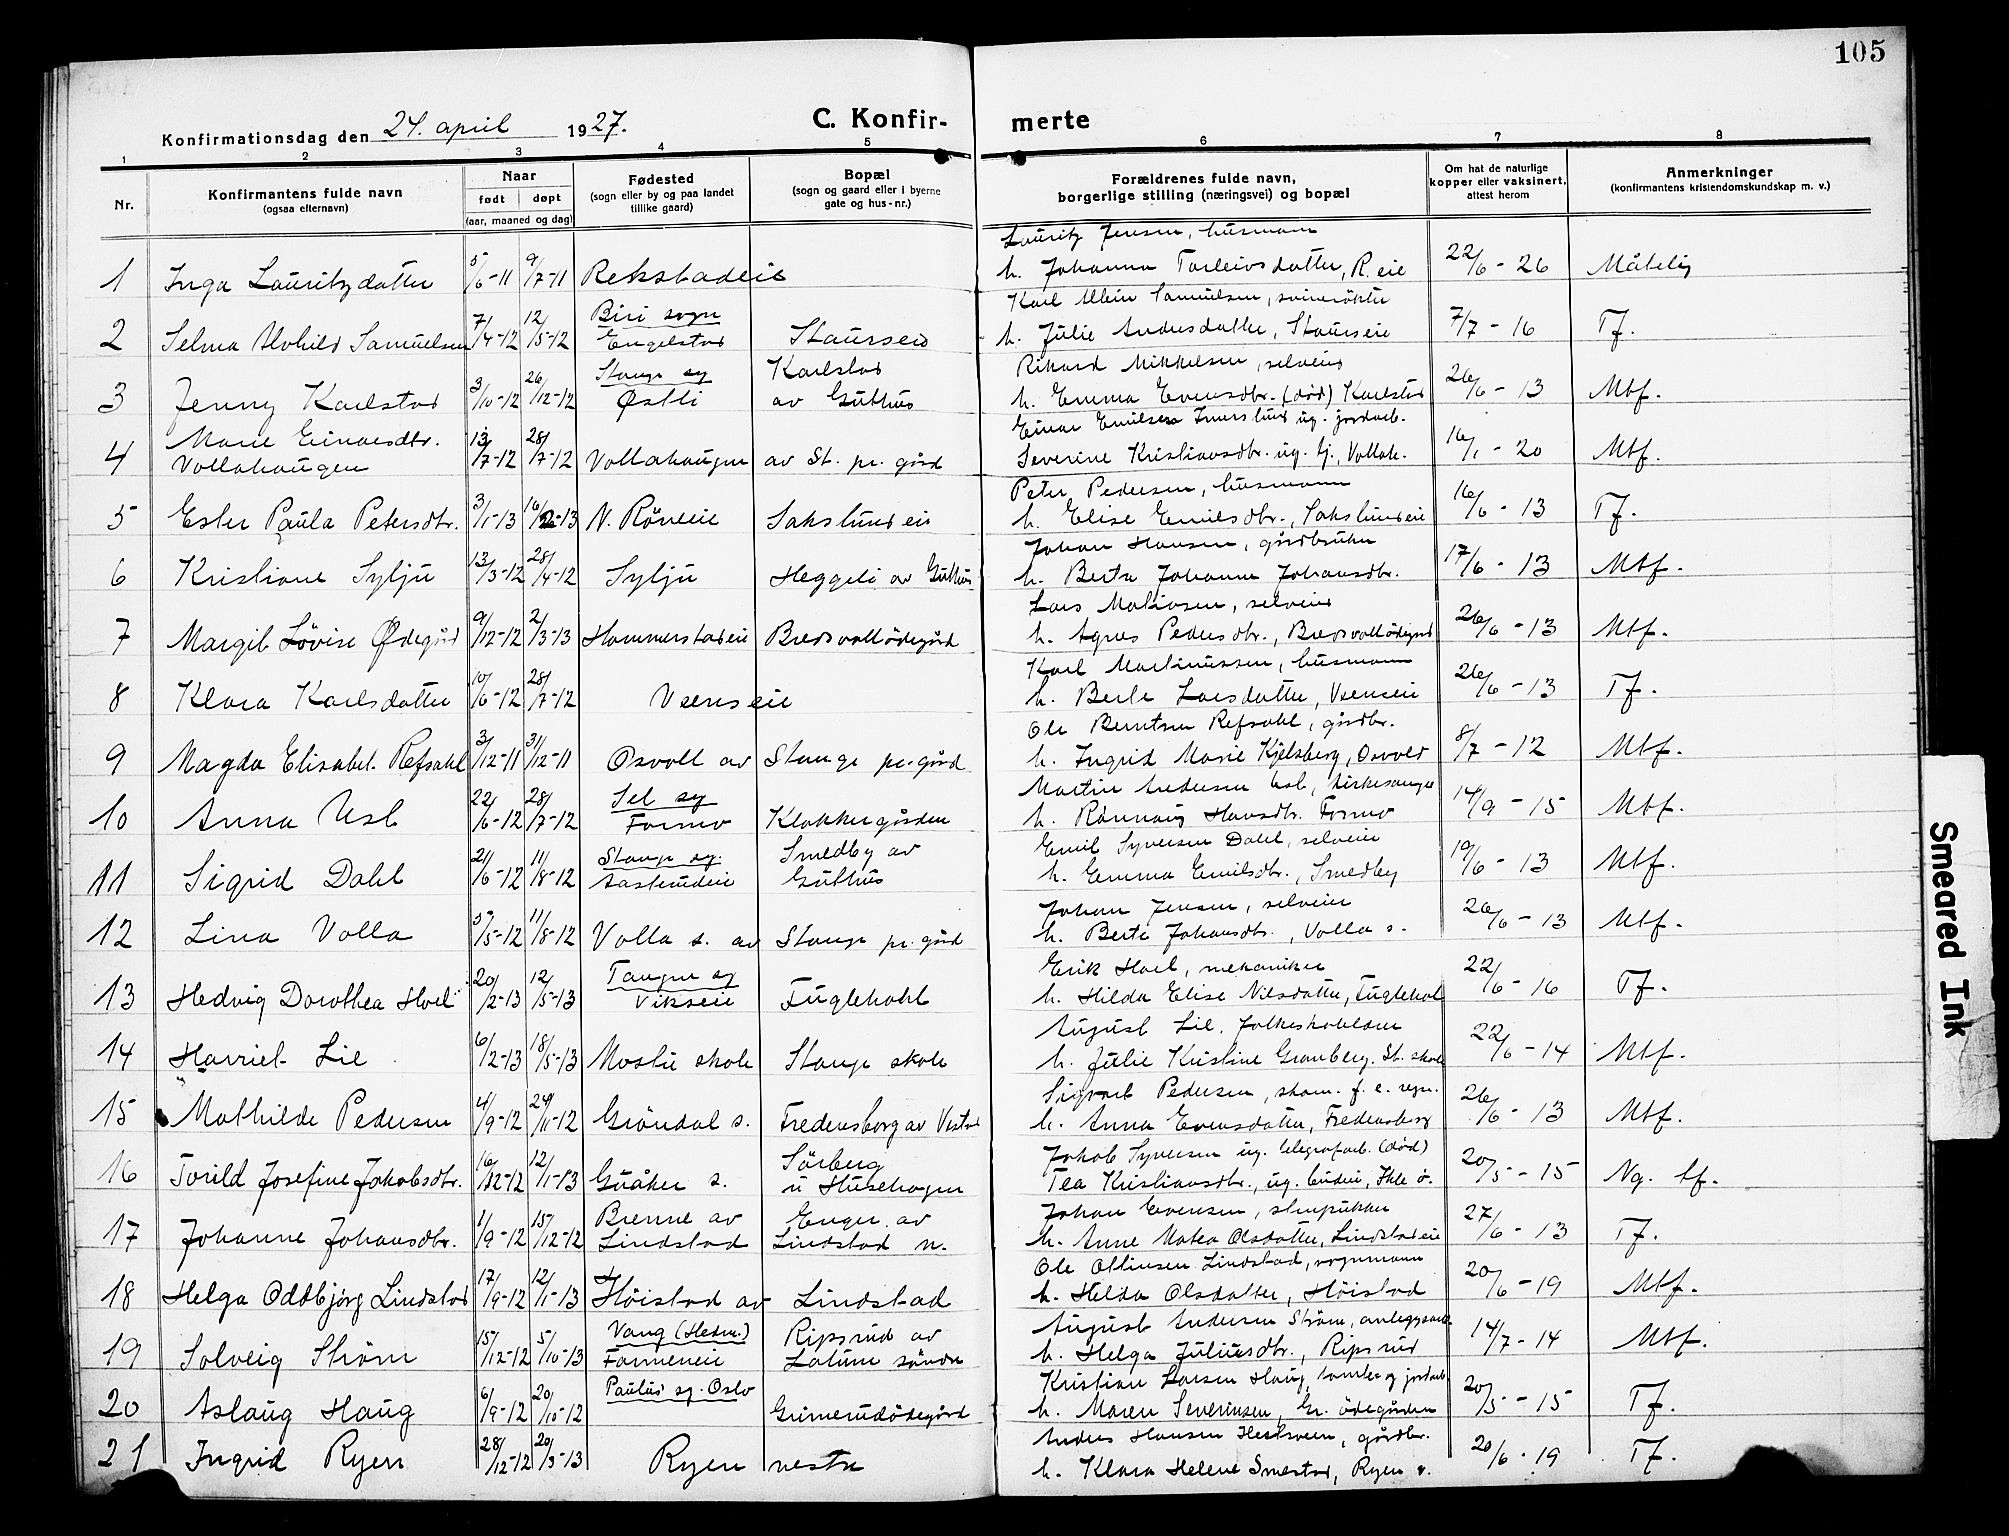 105
Konfirmationsdag den 24. april 1927.
C. Konfir-
merte
1 2 3 4 5 6 7 8
Nr.
Konfirmantens fulde navn
(ogsaa efternavn)
Naar
født døpt
(aar, maaned og dag)
Fødested
(sogn eller by og paa landet
tillike gaard)
Bopæl
(sogn og gaard eller i byerne
gate og hus-nr.)
Forældrenes fulde navn,
borgerlige stilling (næringsvei) og bopæl
Om hat de naturlige
kopper eller vaksinert,
attest herom
Anmerkninger
(konfirmantens kristendomskundskap m. v.)
Lauritz Jensen, husmann
1 Inga Lauritzdatter 5/6-11 9/7-11 Rekstadeie h. Johanna Torleivsdatter, R.eie 22/6-26 Måtelig
Biri sogn Karl Samuelsen,
2 Selma Samuelsen 7/4-12 12/5-12 Engelstad Staurseie h. Julie Andersdatter, Staurseie 7/7-16 Tf.
Stange sg Karlstad Rikard Mikkelsen, selveier
3 Jenny Karlstad 3/10-12 26/12-12 Østli av Guthus h. Emma Evensdtr. (død) Karlstad 26/6-13 Mtf.
Marie Einarsdtr. Einar Emilsen ug. jordarb.
4 Vollahaugen 13/7-12 28/7-12 Vollahaugen av St. pr. gård Severine Kristiansdtr. ug. tj., Vollah. 16/1-20 Mtf.
Peter Pedersen, husmann
5 Ester Paula Petersdtr. 3/1-13 16/2-13 N. Röneie Sakslundeie h. Elise Emilsdtr., Sakslundeie 16/6-13 Tf.
Johan Hansen, gårdbruker
6 Kristiane Sylju 13/3-12 28/4-12 Sylju Heggeli av Guthus h. Berta Johanne Johansdtr. 17/6-13 Mtf.
Lars Mathisen, selveier
7 Margit Lövise Ødegård 9/12-12 2/3-13 Hammerstadeie Bredsvollödegård h. Agnes Pedersdtr., Bredsvollödegård 26/6-13 Mtf.
Karl Martinussen, husmann
8 Klara Karlsdatter 10/6-12 28/7-12 Veenseie h. Berte Larsdatter, Veenseie 26/6-13 Tf.
Ole Berntsen Refsahl, gårdbr.
9 Magda Elisabet Refsahl 3/12-11 31/12-11 Osvoll av Stange pr. gård h. Ingrid Marie Kjelsberg, Osvold 8/7-12 Mtf.
Sel sg Martin Andersen Usl, kirkesanger
10 Anna Usl 22/6-12 28/7-12 Formo Klokkergården h. Rønnaug Hansdtr. Formo 14/9-15 Mtf.
Stange sg. Smedby av Emil Syversen Dahl, selveier
11 Sigrid Dahl 21/6-12 11/8-12 Aasterudeie Guthus h. Emma Emilsdtr., Smedby 19/6-13 Mtf.
Johan Jensen, selveier
12 Lina Volla 5/5-12 11/8-12 Volla s. av Stange pr. gård h. Berte Johansdtr., Volla s. 26/6-13 Mtf.
Tangen sg Erik Hoel, mekaniker
13 Hedvig Dorothea Hoel 20/2-13 12/5-13 Vikseie Fuglehahl h. Hilda Elise Nilsdatter, Fuglehal 22/6-16 Tf.
August Lie,
14 Harriet Lie 6/2-13 18/5-13 Mostu skole Stange skole h. Julie Kristine Granberg, St. skole 22/6-14 Mtf.
Sigvart Pedersen, skom. f. e. regn.
15 Mathilde Pedersen 4/9-12 24/11-12 Gröndal s. Fredensborg av Vestad h. Anna Evensdatter, Fredensborg 26/6-13 Mtf.
Sörberg Jakob Syversen ug. telegrafarb. (død)
16 Torild Josefine Jakobsdtr. 16/12-12 12/1-13 Guåker s. u Husehagen Tea Kristiansdtr., ug. 20/5-15 Ng. tf.
Brenne av Enger av Johan Evensen,
17 Johanne Johansdtr. 1/9-12 15/12-12 Lindstad Lindstad n. h. Anne Matea Olsdatter, Lindstadeie 27/6-13 Tf.
Ole Ottinsen Lindstad, vognmann
18 Helga Oddbjörg Lindstad 17/9-12 12/1-13 Höistad av Lindstad h. Helda Olsdatter, Höistad 20/6-19 Mtf.
Vang (Hedm.) Ripsrud av August Andersen Ström, anleggsarb.
19 Solveig Ström 15/12-12 5/10-13 Farmeneie Lalum söndre h. Helga Juliusdtr., Ripsrud 14/7-14 Mtf.
Paulus sg. Oslo Kristian Larsen Haug, tomter og jordarb.
20 Aslaug Haug 6/9-12 20/10-12 Grimerudödegård h. Maren Severinsen, Gr. ödegården 20/5-15 Tf.
Anders Hansen gårdbr.
21 Ingrid Ryen 28/12-12 20/3-13 Ryen vestre h. Klara Helene Smestad, Ryen v. 20/6-19 Tf.
Smeared Ink